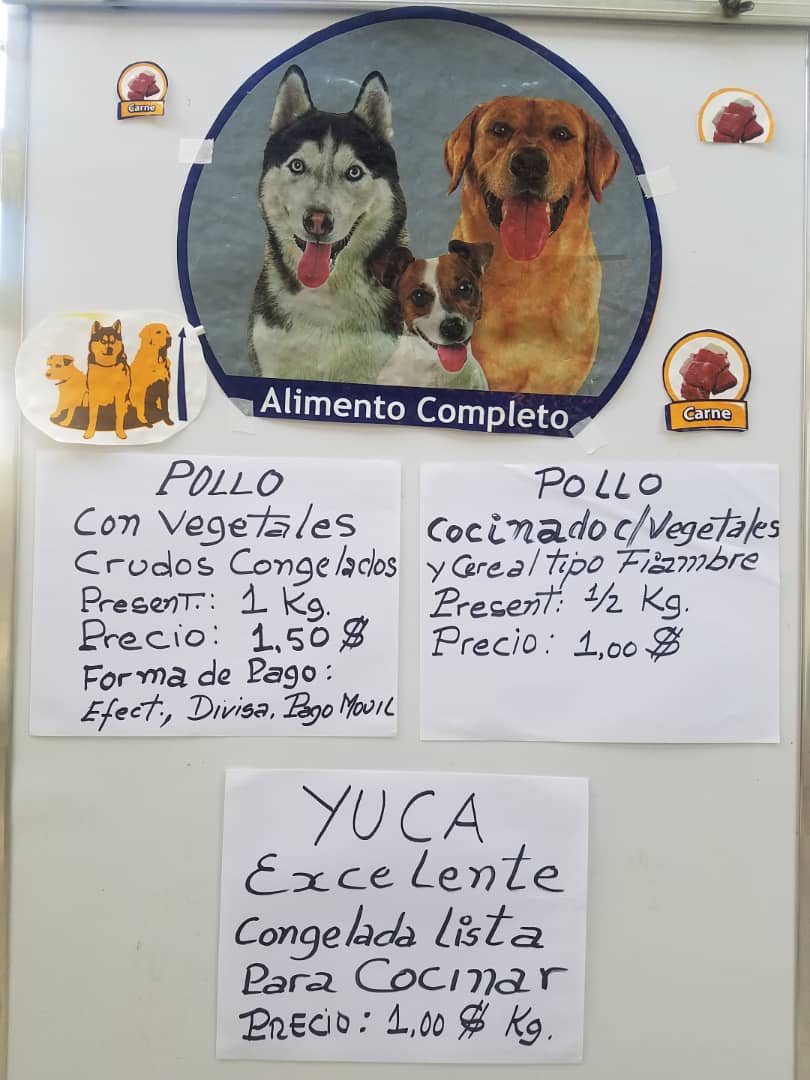 Carne
Alimento Completo
Carne
POLLO
Con Vegetales
Crudos Congelados
Present.: 1 Kg.
Precio: 1,50 $
Forma de Pago:
Efect., Divisa, Pago Movil
POLLO
Cocinado c/Vegetales
y Cereal tipo Fiambre
Present: 1/2 Kg.
Precio: 1,00 $
YUCA
Excelente
Congelada lista
Para Cocinar
PRECIO: 1,00 $ Kg.